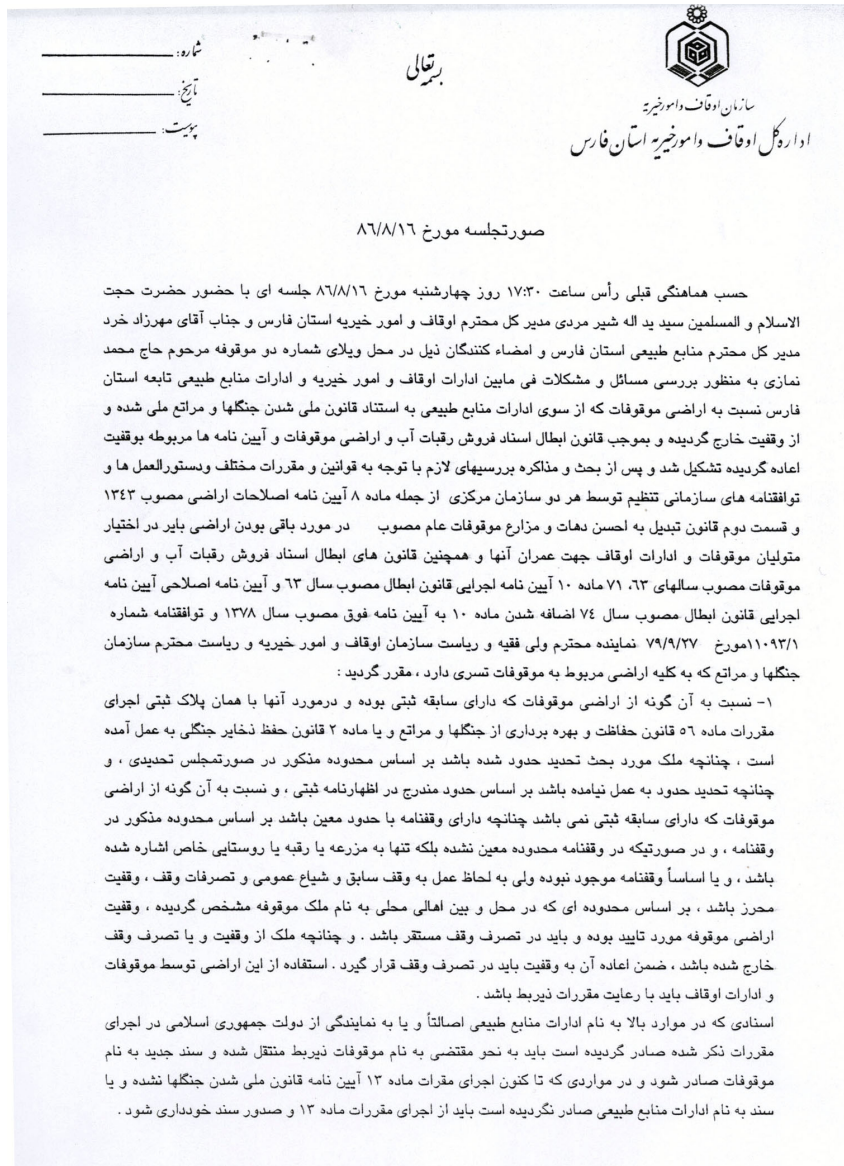 سازمان اوقاف و امور خیریه
اداره کل اوقاف و امور خیریه استان فارس
بسمه تعالی
شماره:
تاریخ:
پیوست:
صورتجلسه مورخ ۸۶/۸/۱۶
حسب هماهنگی قبلی رأس ساعت ۱۷:۳۰ روز چهارشنبه مورخ ۸۶/۸/۱۶ جلسه ای با حضور حضرت حجت
الاسلام و المسلمین سید ید اله شیر مردی مدیر کل محترم اوقاف و امور خیریه استان فارس و جناب آقای مهرزاد خرد
مدیر کل محترم منابع طبیعی استان فارس و امضاء کنندگان ذیل در محل ویلای شماره دو موقوفه مرحوم حاج محمد
نمازی به منظور بررسی مسائل و مشکلات فی مابین ادارات اوقاف و امور خیریه و ادارات منابع طبیعی تابعه استان
فارس نسبت به اراضی موقوفات که از سوی ادارات منابع طبیعی به استناد قانون ملی شدن جنگلها و مراتع ملی شده و
از وقفیت خارج گردیده و بموجب قانون ابطال اسناد فروش رقبات آب و اراضی موقوفات و آیین نامه ها مربوطه بوقفیت
اعاده گردیده تشکیل شد و پس از بحث و مذاکره بررسیهای لازم با توجه به قوانین و مقررات مختلف ودستورالعمل ها و
توافقنامه های سازمانی تنظیم توسط هر دو سازمان مرکزی از جمله ماده ۸ آیین نامه اصلاحات اراضی مصوب ۱۳۴۳
و قسمت دوم قانون تبدیل به احسن دهات و مزارع موقوفات عام مصوب در مورد باقی بودن اراضی بایر در اختیار
متولیان موقوفات و ادارات اوقاف جهت عمران آنها و همچنین قانون های ابطال اسناد فروش رقبات آب و اراضی
موقوفات مصوب سالهای ۶۳، ۷۱ ماده ۱۰ آیین نامه اجرایی قانون ابطال مصوب سال ۶۳ و آیین نامه اصلاحی آیین نامه
اجرایی قانون ابطال مصوب سال ۷۴ اضافه شدن ماده ۱۰ به آیین نامه فوق مصوب سال ۱۳۷۸ و توافقنامه شماره
۱۱۰۹۳/۱مورخ ۷۹/۹/۲۷ نماینده محترم ولی فقیه و ریاست سازمان اوقاف و امور خیریه و ریاست محترم سازمان
جنگلها و مراتع که به کلیه اراضی مربوط به موقوفات تسری دارد ، مقرر گردید :
۱- نسبت به آن گونه از اراضی موقوفات که دارای سابقه ثبتی بوده و درمورد آنها با همان پلاک ثبتی اجرای
مقررات ماده ۵۶ قانون حفاظت و بهره برداری از جنگلها و مراتع و یا ماده ۲ قانون حفظ ذخایر جنگلی به عمل آمده
است ، چنانچه ملک مورد بحث تحدید حدود شده باشد بر اساس محدوده مذکور در صورتمجلس تحدیدی ، و
چنانچه تحدید حدود به عمل نیامده باشد بر اساس حدود مندرج در اظهارنامه ثبتی ، و نسبت به آن گونه از اراضی
موقوفات که دارای سابقه ثبتی نمی باشد چنانچه دارای وقفنامه با حدود معین باشد بر اساس محدوده مذکور در
وقفنامه ، و در صورتیکه در وقفنامه محدوده معین نشده بلکه تنها به مزرعه یا رقبه یا روستایی خاص اشاره شده
باشد ، و یا اساساً وقفنامه موجود نبوده ولی به لحاظ عمل به وقف سابق و شیاع عمومی و تصرفات وقف ، وقفیت
محرز باشد ، بر اساس محدوده ای که در محل و بین اهالی محلی به نام ملک موقوفه مشخص گردیده ، وقفیت
اراضی موقوفه مورد تایید بوده و باید در تصرف وقف مستقر باشد . و چنانچه ملک از وقفیت و یا تصرف وقف
خارج شده باشد ، ضمن اعاده آن به وقفیت باید در تصرف وقف قرار گیرد . استفاده از این اراضی توسط موقوفات
و ادارات اوقاف باید با رعایت مقررات ذیربط باشد .
اسنادی که در موارد بالا به نام ادارات منابع طبیعی اصالتاً و یا به نمایندگی از دولت جمهوری اسلامی در اجرای
مقررات ذکر شده صادر گردیده است باید به نحو مقتضی به نام موقوفات ذیربط منتقل شده و سند جدید به نام
موقوفات صادر شود و در مواردی که تا کنون اجرای مقرات ماده ۱۳ آیین نامه قانون ملی شدن جنگلها نشده و یا
سند به نام ادارات منابع طبیعی صادر نگردیده است باید از اجرای مقررات ماده ۱۳ و صدور سند خودداری شود .